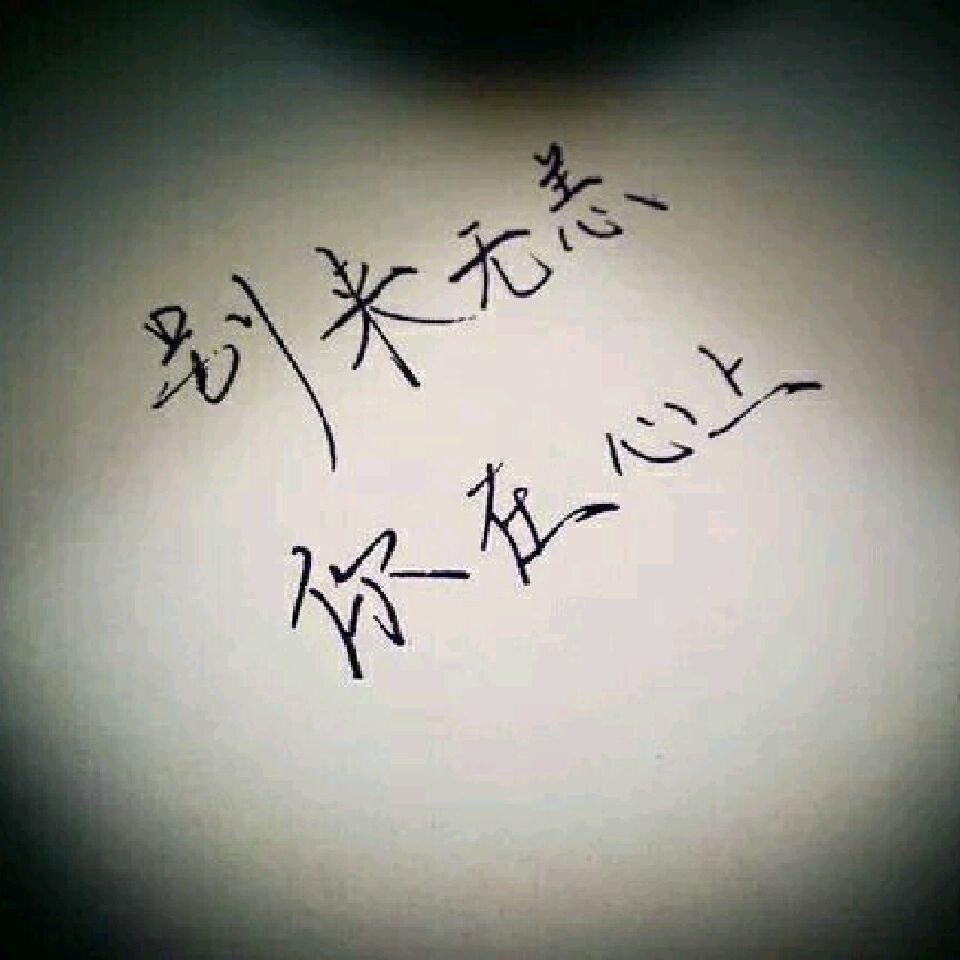 别来无恙
你在心上